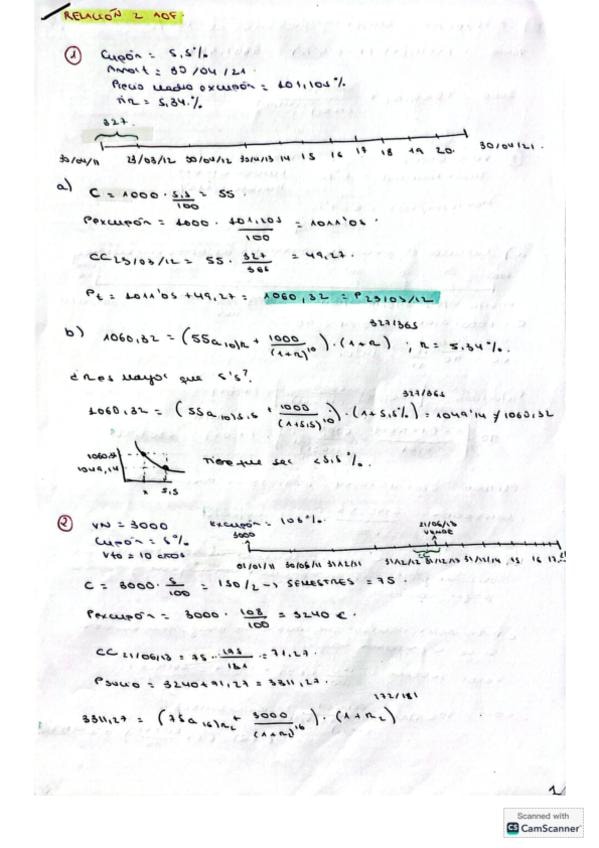 RELACIÓN 2 AOF.
① Cupón = 5,5%
Amort = 30/04/21.
Precio medio excupón = 101,105%
TIR = 5,34.%
327.
30/04/11 23/03/12 30/04/12 30/4/13 14 15 16 17 18 19 20 30/04/21.
a) C = 1000 · 5,5/100 = 55.
Pexcupón = 1000 · 101,105/100 = 1011'05.
CC 23/03/12 = 55 · 327/366 = 49,27.
Pt = 1011'05 + 49,27 = 1060,32 = P23/03/12
b) 1060,32 = (55a10)r + 1000/(1+r)^10) · (1+r)^327/365 ; r = 5,34%.
¿r es mayor que 5'5?
1060,32 = (55a10)5,5 + 1000/(1+5,5)^10) · (1+5,5%)^327/365 = 1049'14 ≠ 1060,32
1060,32
1049,14
x 5,5
Tiene que ser <5,5%.
② VN = 3000 excupón = 108%.
Cupón = 5%
Vto = 10 años
3000 21/06/13 VENDE
01/01/11 30/06/11 31/12/11 31/12/12 31/12/13 31/12/14 15 16 17
CC
C = 3000 · 5/100 = 150/2 → SEMESTRES = 75.
Pexcupón = 3000 · 108/100 = 3240 €.
CC 21/06/13 = 75 · /181 = 71,27.
Psucio = 3240+71,27 = 3311,27.
3311,27 = (75a16)r2 + 3000/(1+r2)^16) · (1+r2)^172/181
1
Scanned with
CS CamScanner